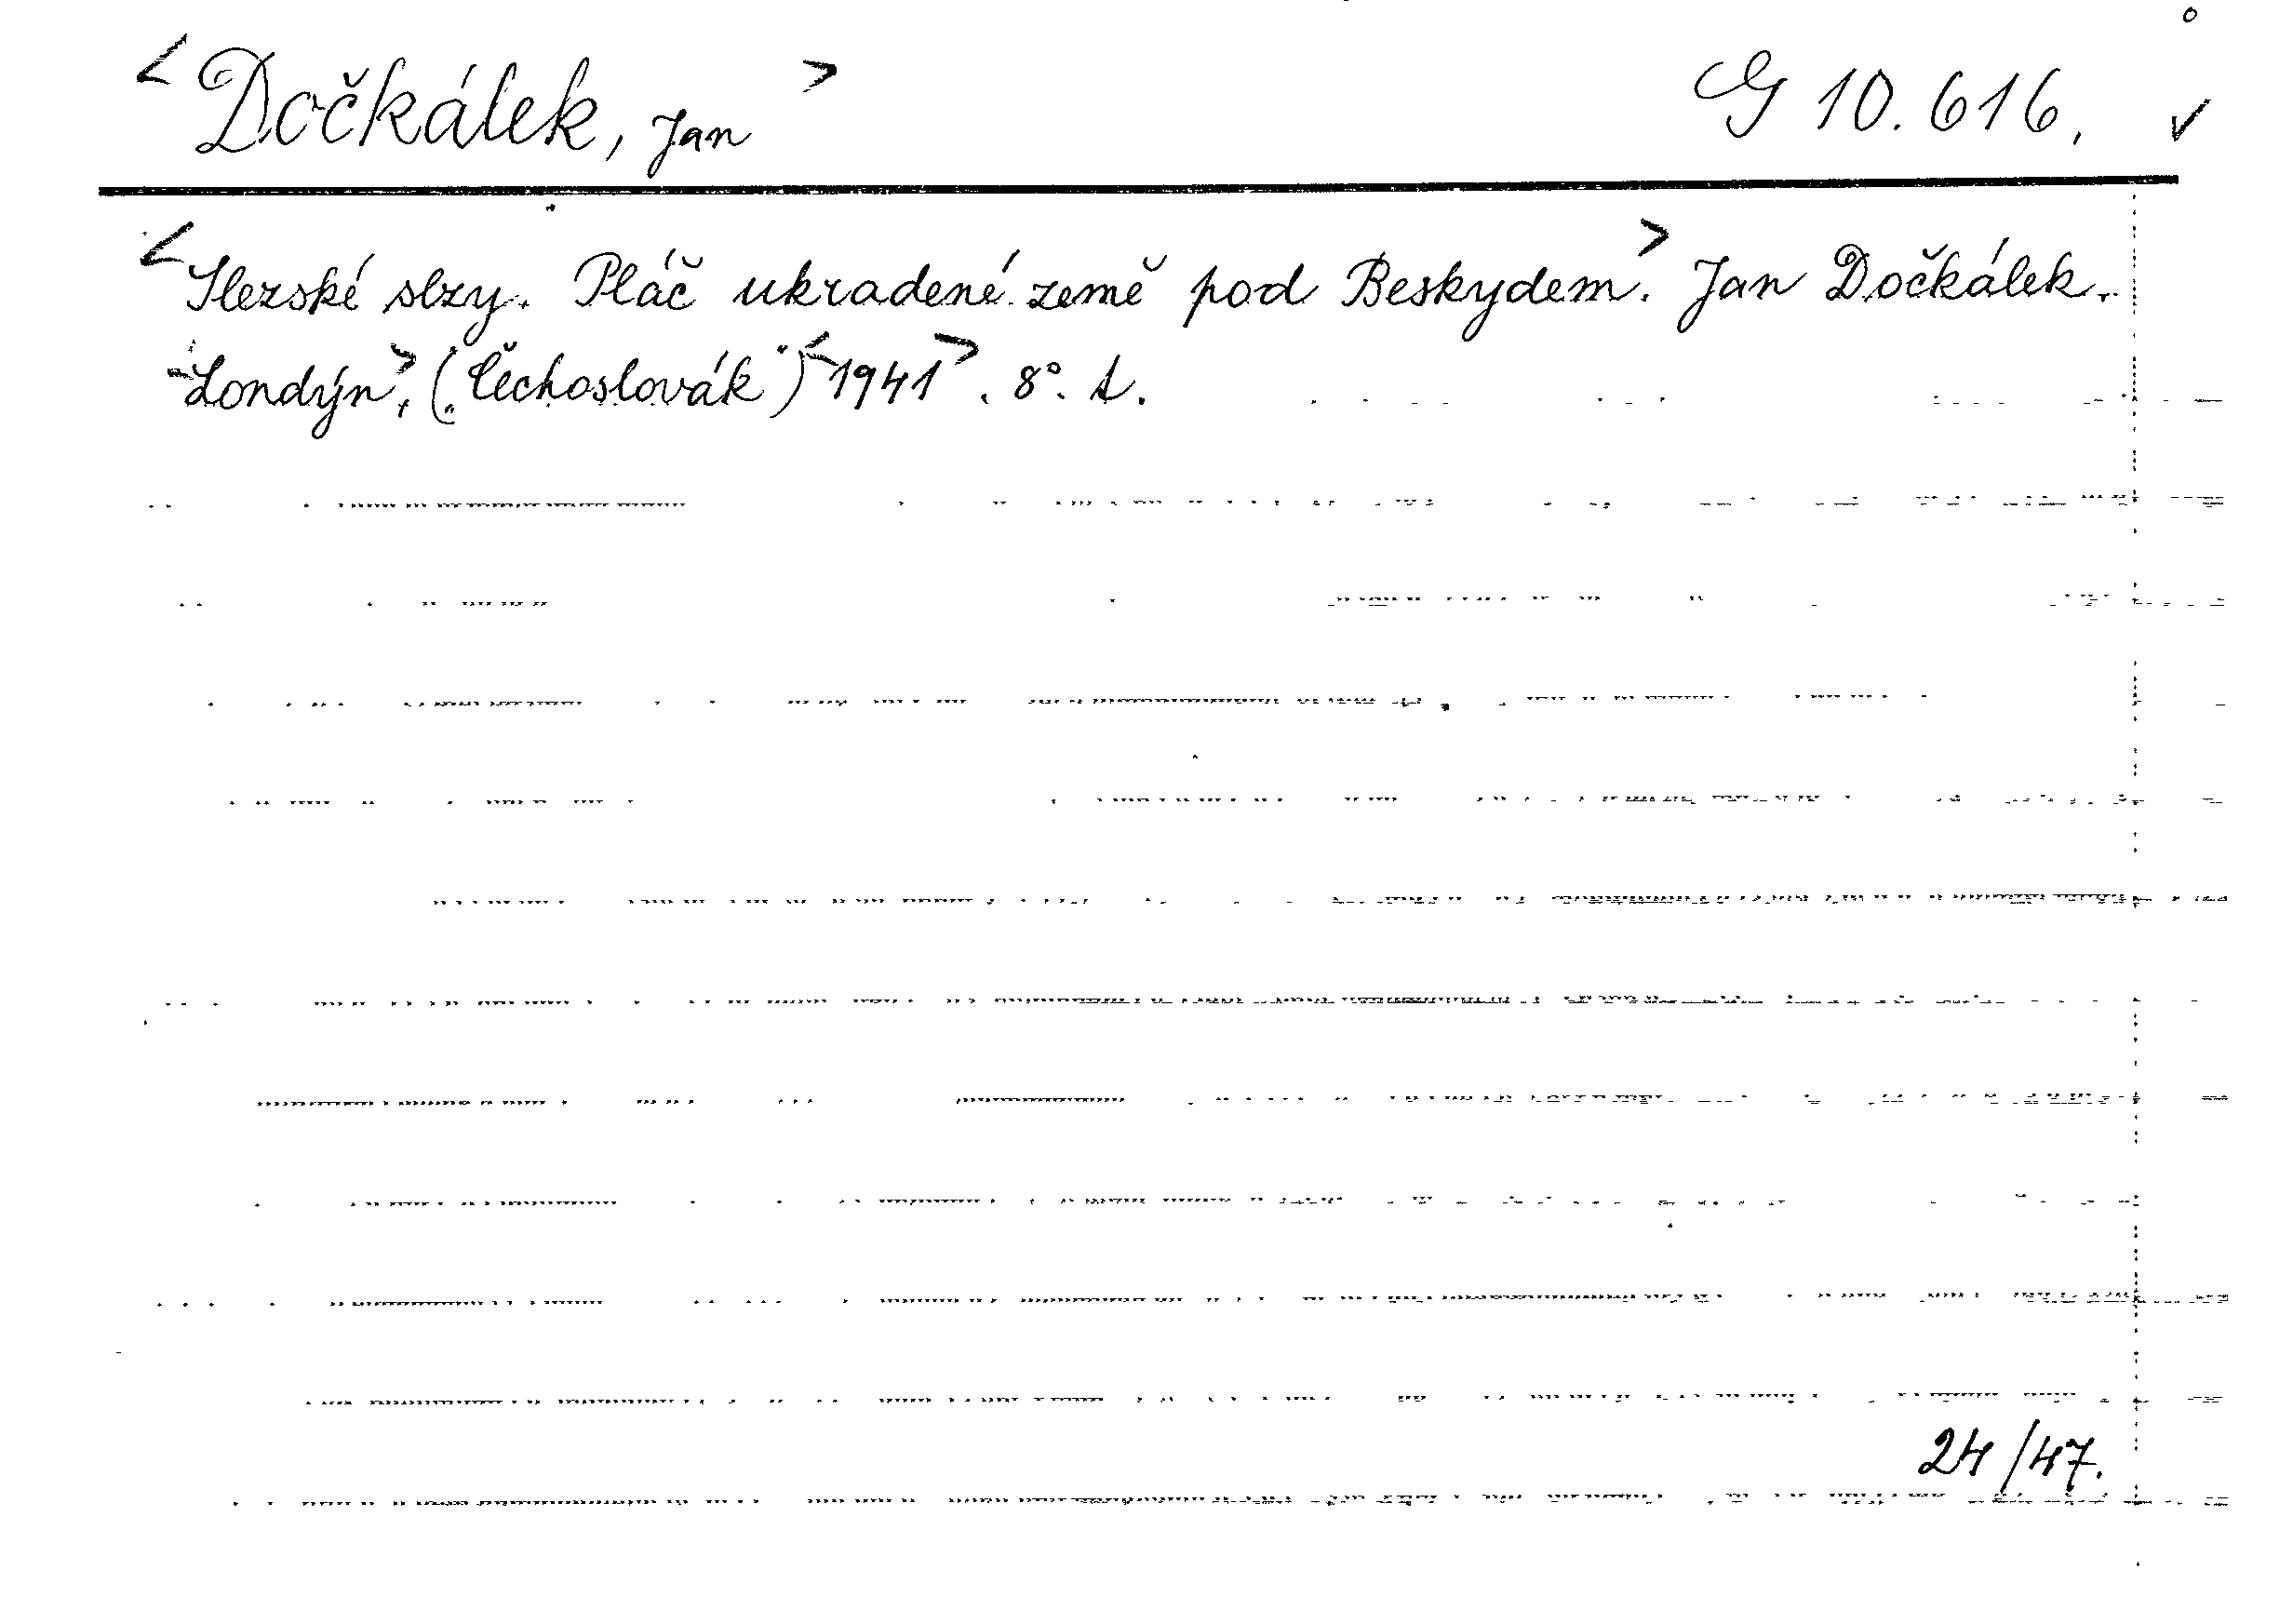 <Dočkálek, Jan> G 10.616. ✓
<Slezské slzy. Pláč ukradené země pod Beskydem>. Jan Dočkálek.
<Londýn>, („Čechoslovák“) <1941>. 8°. t.
24/47.